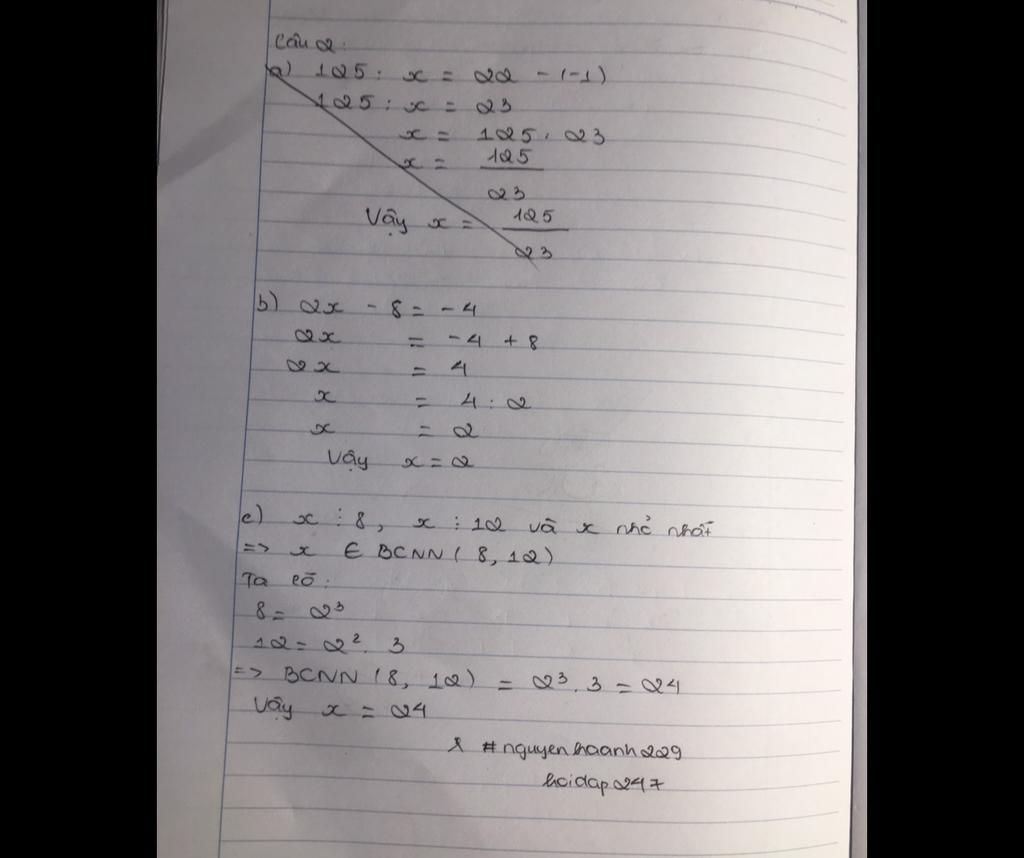 Câu 2:
a) 125 : x = 22 - (-1)
125 : x = 23
x = 125 . 23
x = 125
23
Vậy x = 125
23
b) 2x - 8 = -4
2x = -4 + 8
2x = 4
x = 4 : 2
x = 2
Vậy x = 2
c) x ⋮ 8, x ⋮ 12 và x nhỏ nhất
=> x ∈ BCNN (8, 12)
Ta có:
8 = 2³
12 = 2² . 3
=> BCNN (8, 12) = 2³ . 3 = 24
Vậy x = 24
# nguyenhaanh229
hoidap247